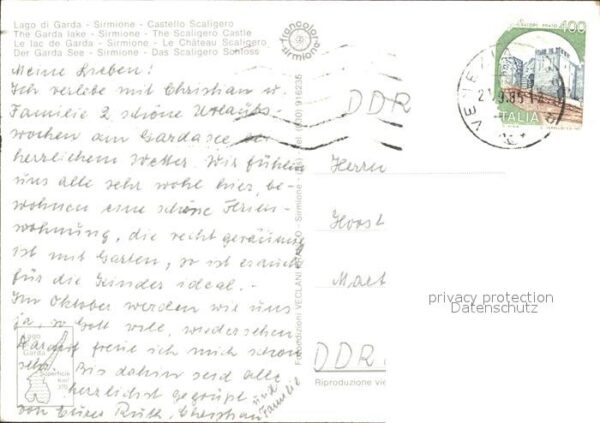 Lago di Garda - Sirmione - Castello Scaligero
The Garda lake - Sirmione - The Scaligero Castle
Le lac de Garda - Sirmione - Le Château Scaligero
Der Garda See - Sirmione - Das Scaligero Schloss
francolor
sirmione
400
ITALIA
VENEZIA
Meine Lieben!
Ich verlebe mit Christian u.
Familie 2 schöne Urlaubs-
wochen am Gardasee bei
herrlichem Wetter. Wir fühlen
uns alle sehr wohl hier, be-
wohnen eine schöne Ferien-
wohnung, die recht geräumig
ist mit Garten, so ist es auch
für die Kinder ideal. -
Im Oktober werden wir uns
ja, so Gott will, wiedersehen
Darauf freue ich mich schon
sehr. Bis dahin seid alle
herzlichst gegrüßt
von Eurer Ruth, Christian und Familie
DDR
Herrn
Horst
Mart
DDR
Fotoedizioni VECLANI FRANCO - Sirmione - (Bs) - Tel. (030) 916235
Lago
Garda
Superficie
Riproduzione vie
privacy protection
Datenschutz